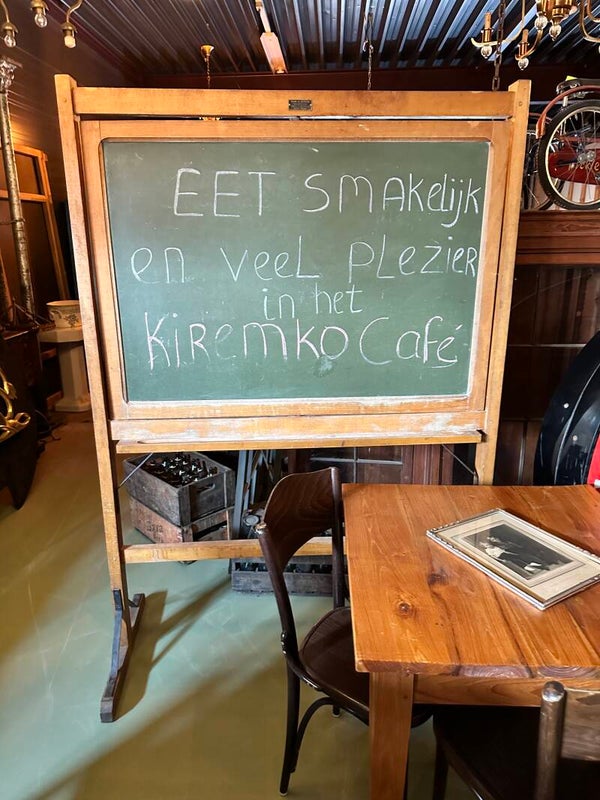 EET SMAKelijk
en veel plezier
in het
KiRemKO Café